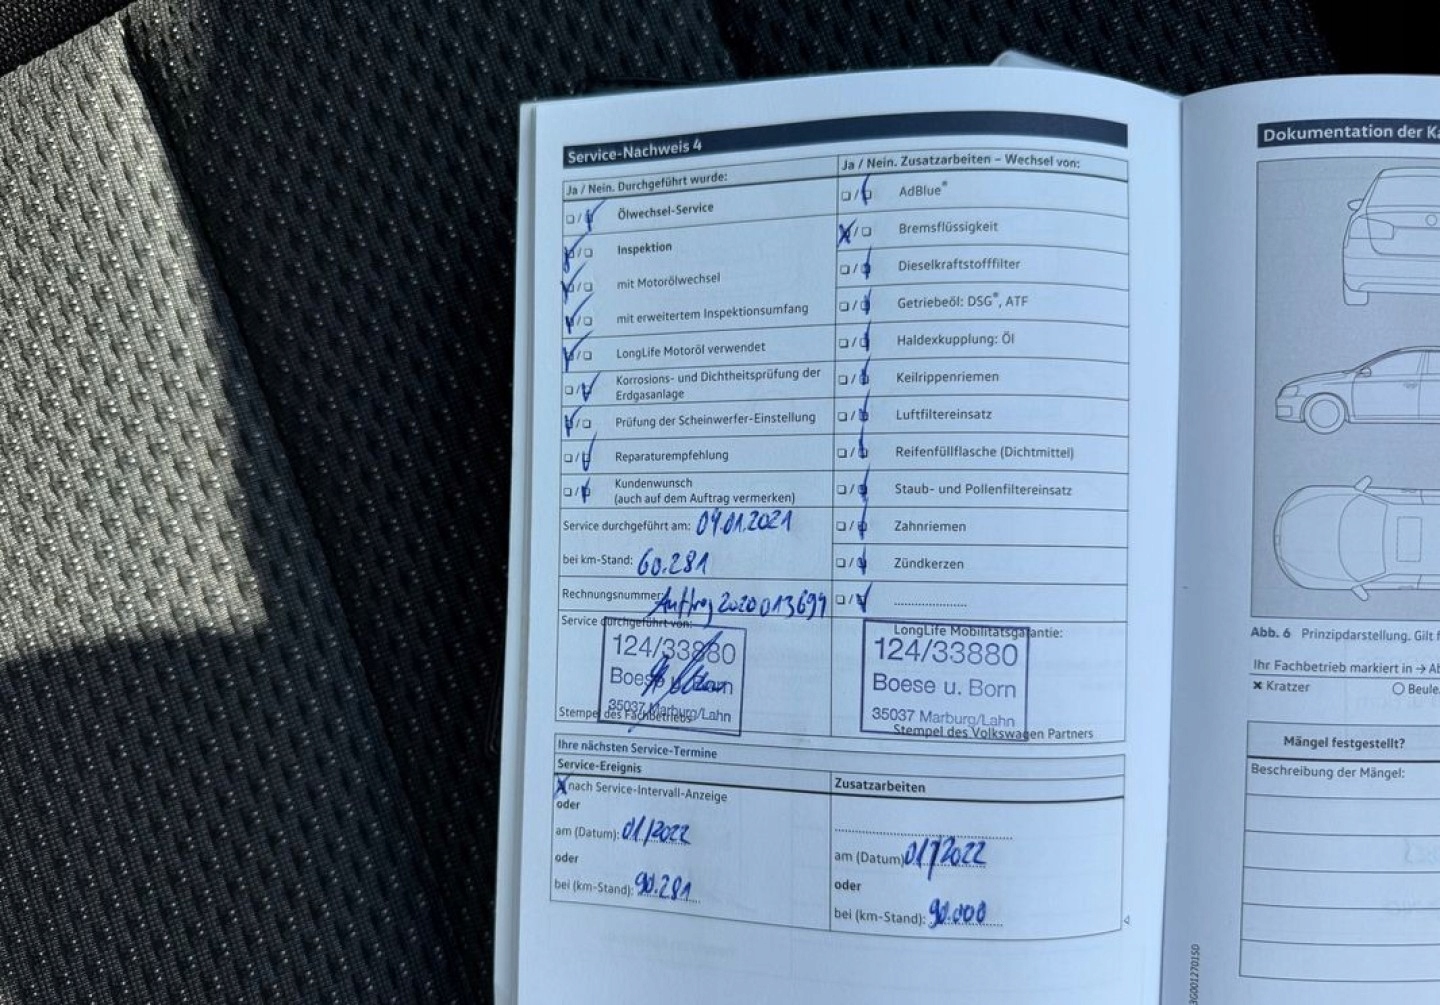 Service-Nachweis 4
Ja / Nein. Durchgeführt wurde:
Ölwechsel-Service
Inspektion
mit Motorölwechsel
mit erweitertem Inspektionsumfang
LongLife Motoröl verwendet
Korrosions- und Dichtheitsprüfung der
Erdgasanlage
Prüfung der Scheinwerfer-Einstellung
Reparaturempfehlung
Kundenwunsch
(auch auf dem Auftrag vermerken)
Service durchgeführt am: 04.01.2021
bei km-Stand: 60.281
Rechnungsnummer Auftrag 2020013694
Service durchgeführt von:
124/33880
Boese u. Born
35037 Marburg/Lahn
Stempel des Fachbetriebs
Ja / Nein. Zusatzarbeiten – Wechsel von:
AdBlue®
Bremsflüssigkeit
Dieselkraftstofffilter
Getriebeöl: DSG®, ATF
Haldexkupplung: Öl
Keilrippenriemen
Luftfiltereinsatz
Reifenfüllflasche (Dichtmittel)
Staub- und Pollenfiltereinsatz
Zahnriemen
Zündkerzen
LongLife Mobilitätsgarantie:
124/33880
Boese u. Born
35037 Marburg/Lahn
Stempel des Volkswagen Partners
Ihre nächsten Service-Termine
Service-Ereignis
nach Service-Intervall-Anzeige
oder
am (Datum): 01/2022
oder
bei (km-Stand): 90.281
Zusatzarbeiten
am (Datum) 01/2022
oder
bei (km-Stand): 90.000
3G0012701SD
Dokumentation der Ka
Abb. 6 Prinzipdarstellung. Gilt f
Ihr Fachbetrieb markiert in → Ab
Kratzer
Beule
Mängel festgestellt?
Beschreibung der Mängel: